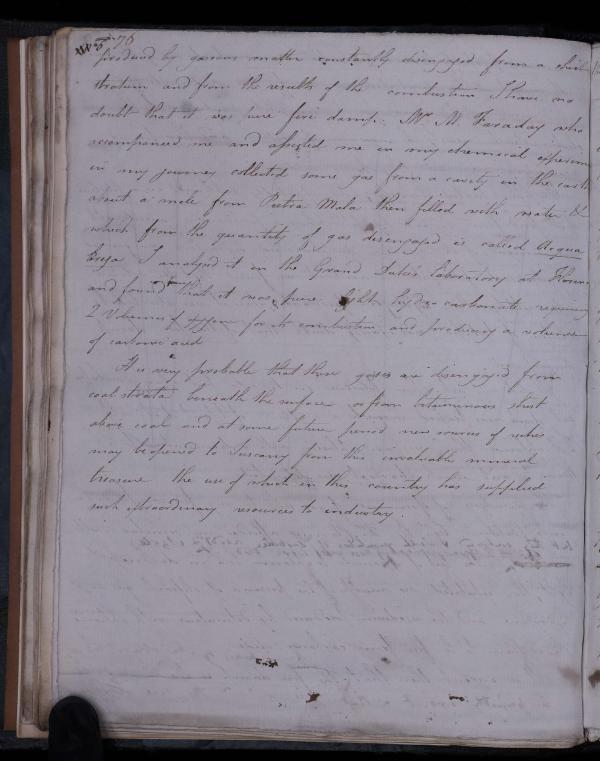 76
produced by gaseous matter constantly disengaged from a shist
stratum and from the results of the combustion I have no
doubt that it was pure fire damp. Mr M. Faraday who
accompanied me and assisted me in my chemical experim
in my journey collected some gas from a cavity in the earth
about a mile from Pietra Mala then filled with water &
which from the quantity of gas disengaged is called Acqua
Buja I analysed it in the Grand Duke's laboratory at Floren
and found that it was pure light hydro carbonate requiring
2 Volumes of for its combustion and producing a volume
of carbonic acid
It is very probable that these gases are disengaged from
coal strata beneath the surface or from bituminous shist
above coal and at some future period new sources of riches
may be opened to Tuscany from this invaluable mineral
treasure the use of which in this country has supplied
such extraordinary resources to industry.